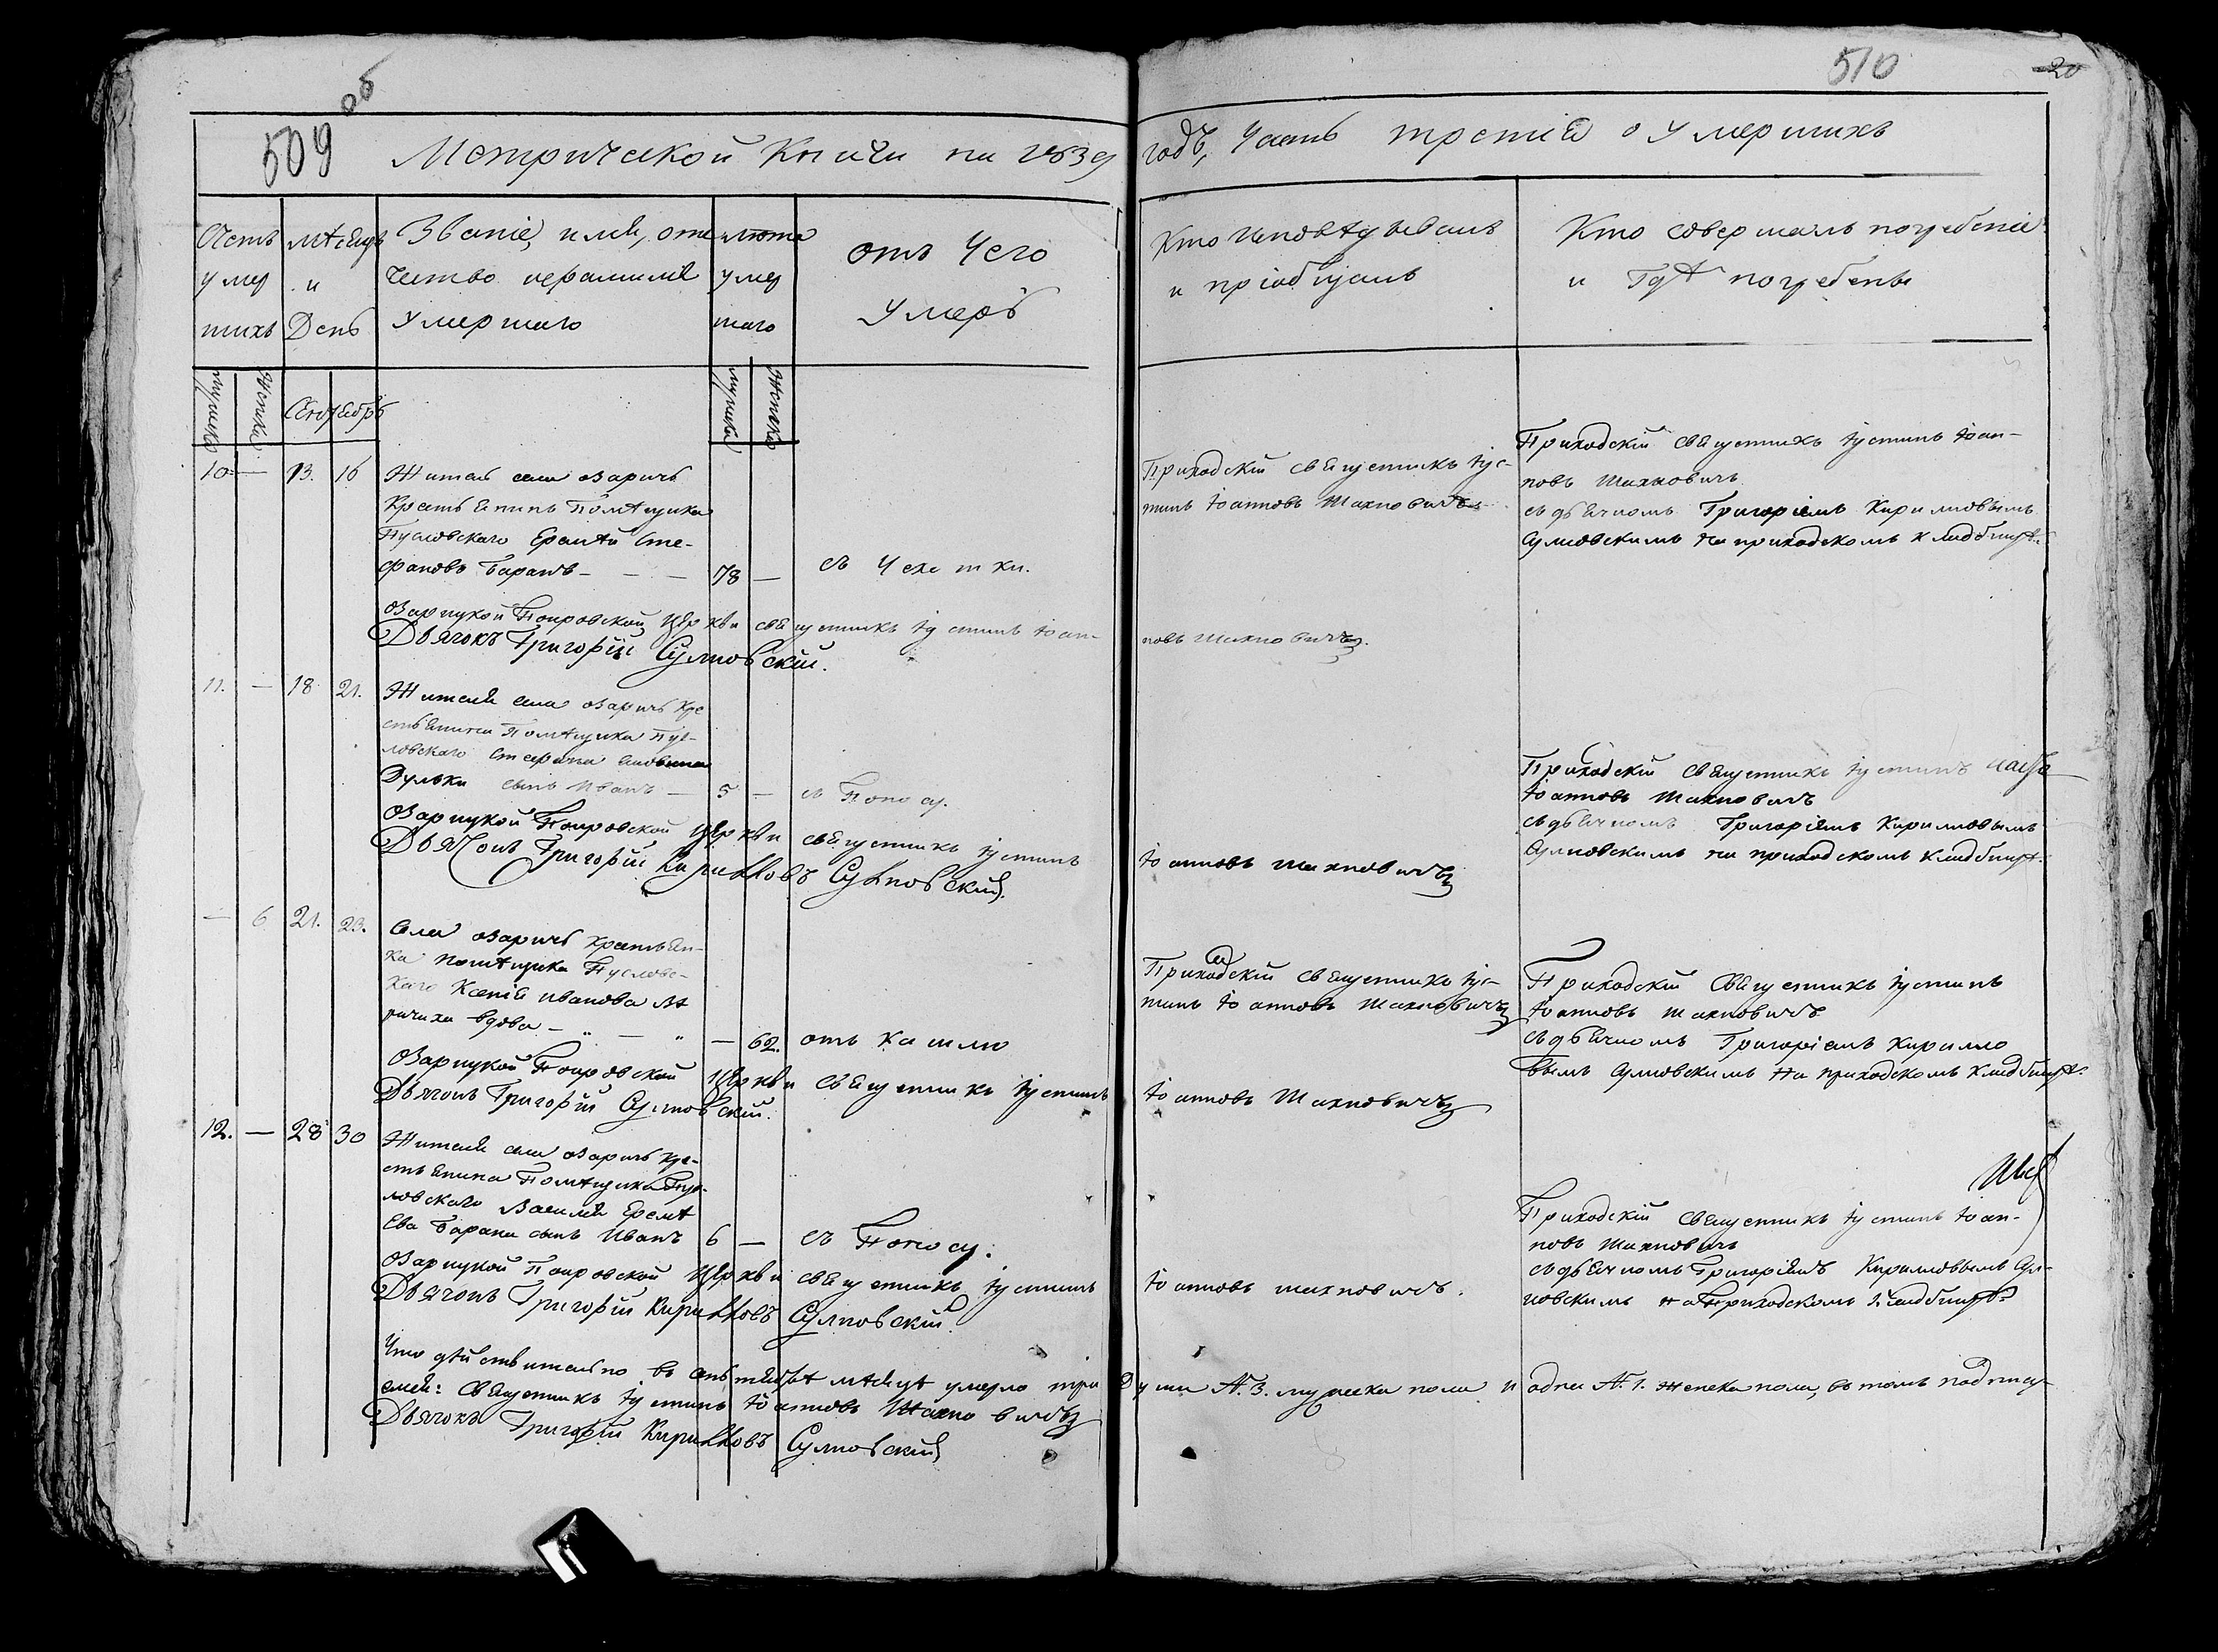 об
509
510
20
Метрической Книги на 1839 годъ, Часть третія о Умершихъ
Счетъ умер шихъ
мѣсяцъ и День
Званіе, имя, оте чество и фамилія Умершаго
лѣта умер шаго
отъ Чего Умеръ
Кто Исповѣдывалъ и пріобщалъ
Кто совершалъ погребеніе и Гдѣ погребены
мужска
женска
Сентябрь
мужска
женска
10. — 13. 16
Житель села Озаричъ
Крестьянинъ Помѣщика
Пусловскаго Еремѣй Сте-
фановъ Баранъ — — — 78 — съ Чехотки.
Приходскій священникъ Іус-
тинъ Іоанновъ Махновичъ
Приходскій священникъ Іустинъ Іоан-
новъ Махновичъ
съ дьячкомъ Григоріемъ Кириловымъ
Сулковскимъ на приходскомъ кладбищѣ.
Озарицкой Покровской Церкви священникъ Іустинъ Іоан-
новъ Махновичъ.
Дьячокъ Григорій Сулковскій.
11. — 18 21.
Жителя села Озаричъ Кре
стьянина Помѣщика Пус-
ловскаго Стефана
Дулька сынъ Иванъ — 5 — съ Поносу.
Приходскій священникъ Іустинъ
Іоанновъ Махновичъ
съ дьячкомъ Григоріемъ Кириловымъ
Сулковскимъ на приходскомъ кладбищѣ.
Озарицкой Покровской Церкви священникъ Іустинъ
Іоанновъ Махновичъ
Дьячокъ Григорій Кирилловъ Сулковскій.
— 6 21. 23.
Села Озаричъ крестьян-
ка помѣщика Пусловс-
каго Ксенія Иванова
вдова — " — " — 62. отъ Кашлю
Приходскій священникъ Іус-
тинъ Іоанновъ Махновичъ
Приходскій Священникъ Іустинъ
Іоанновъ Махновичъ
съ дьячкомъ Григоріемъ Кирилло
вымъ Сулковскимъ На приходскомъ кладбищѣ.
Озарицкой Покровской Церкви священникъ Іустинъ
Іоанновъ Махновичъ
Дьячокъ Григорій Сулковскій.
12. — 28 30
Жителя села Озаричъ кре-
стьянина Помѣщика Пус-
ловскаго Василія Еремѣ
ева Барана сынъ Иванъ 6 — съ Поносу.
Приходскій священникъ Іустинъ Іоан-
новъ Махновичъ
съ дьячкомъ Григоріемъ Кириловымъ Сул-
ковскимъ на Приходскомъ Кладбищѣ
Озарицкой Покровской Церкви священникъ Іустинъ
Іоанновъ Махновичъ.
Дьячокъ Григорій Кирилловъ Сулковскій.
Что дѣйствительно въ сентябрѣ мѣсяцѣ умерло три Души №. 3. мужеска пола и одна №. 1. женска пола, въ томъ подпису-
емся: Священникъ Іустинъ Іоанновъ Махновичъ
Дьячокъ Григорій Кирилловъ Сулковскій